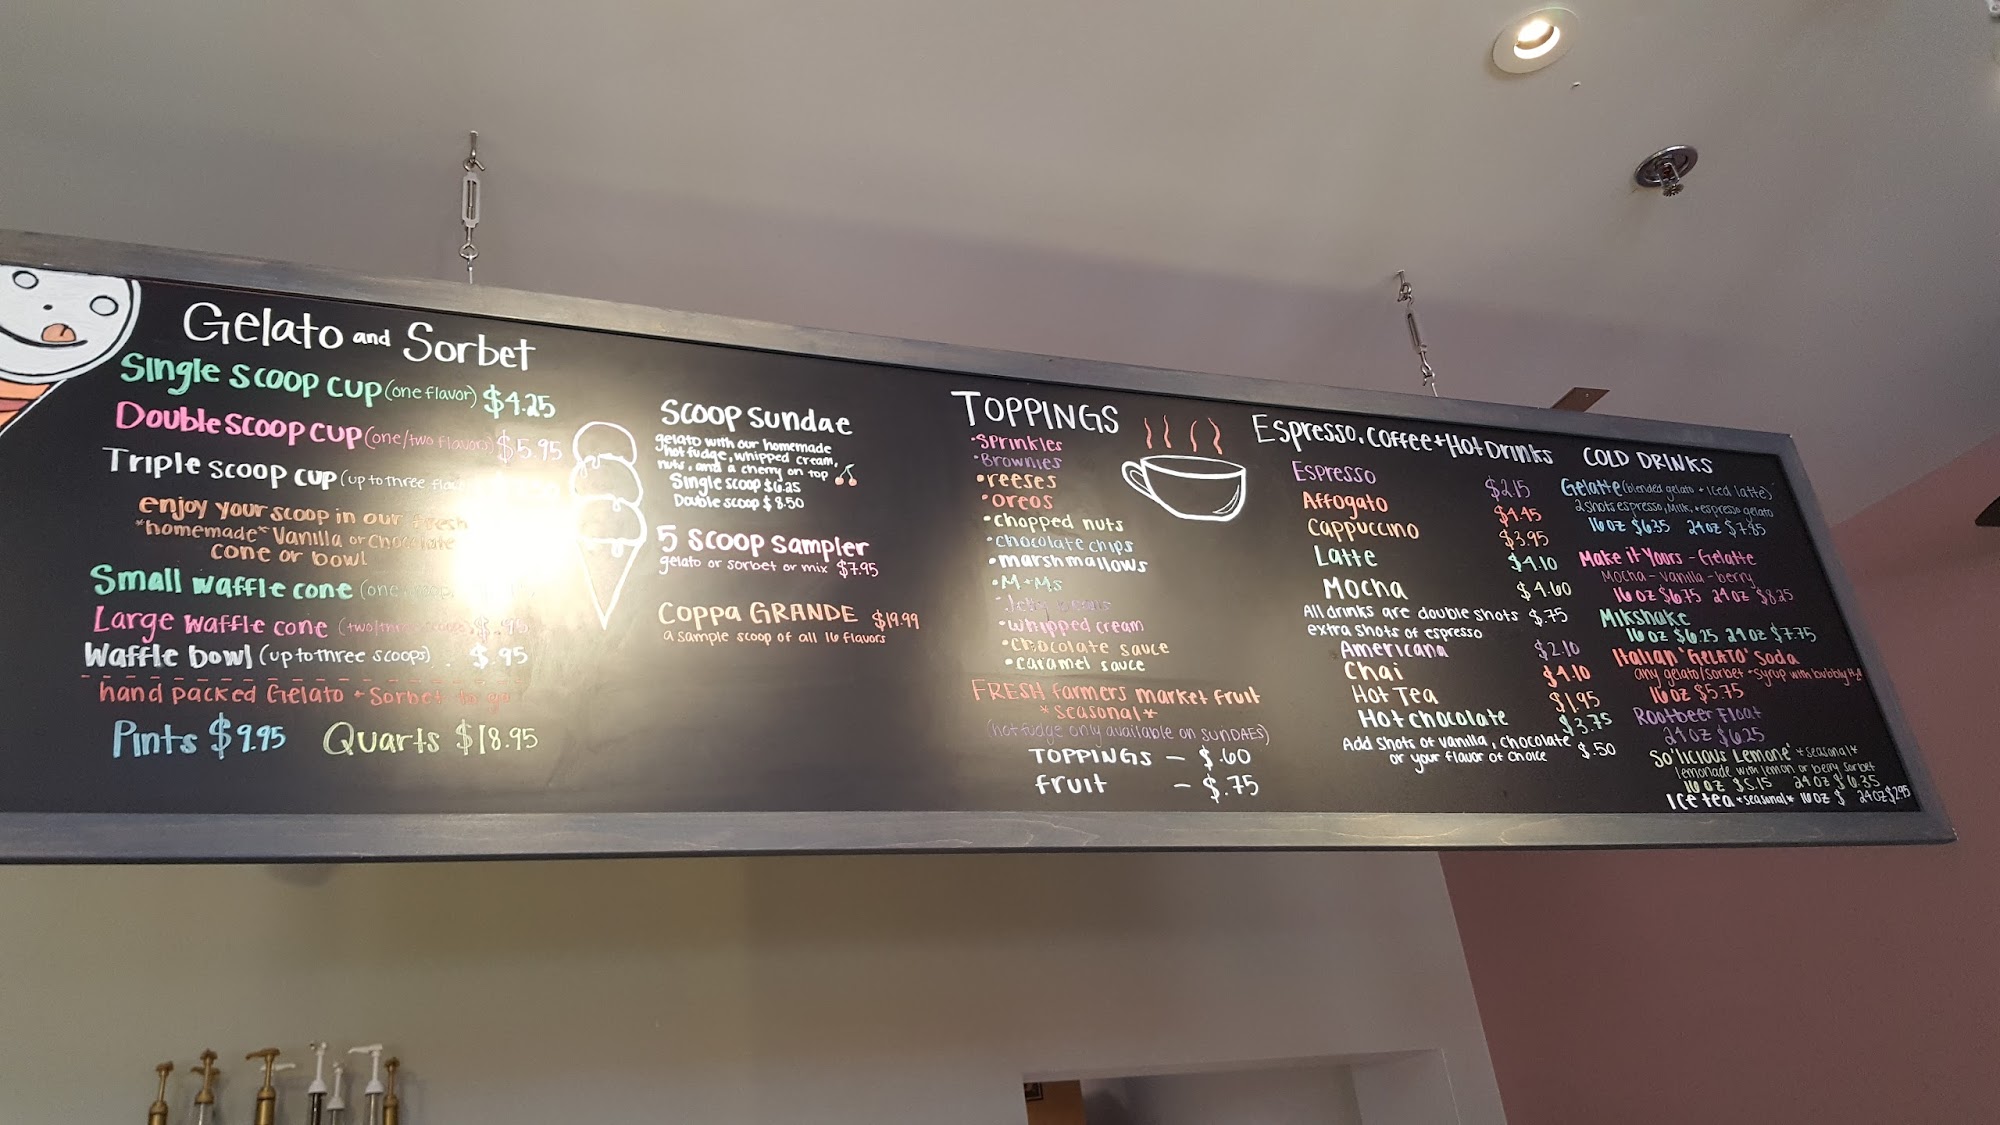 Gelato and Sorbet
Single scoop cup (one flavor) $4.25
Double scoop cup (one/two flavors) $5.95
Triple scoop cup (up to three
enjoy your scoop in our fresh
*homemade* Vanilla or Chocolate
cone or bowl
Small waffle cone (one
Large waffle cone (two/three scoops) $.95
Waffle bowl (up to three scoops) $.95
hand packed Gelato + Sorbet to go
Pints $9.95 Quarts $18.95
Scoop Sundae
gelato with our homemade
hot fudge, whipped cream,
nuts, and a cherry on top
Single scoop $6.25
Double scoop $8.50
5 Scoop Sampler
gelato or sorbet or mix $7.95
Coppa GRANDE $19.99
a sample scoop of all 16 flavors
TOPPINGS
•Sprinkles
•Brownies
•reeses
•oreos
•chopped nuts
•chocolate chips
•marshmallows
•M+Ms
•Jelly beans
•whipped cream
•chocolate sauce
•caramel sauce
FRESH farmers market fruit
*seasonal*
(hot fudge only available on SUNDAES)
TOPPINGS – $.60
fruit – $.75
Espresso, Coffee + Hot Drinks
Espresso $2.15
Affogato $4.45
Cappuccino $3.95
Latte $4.10
Mocha $4.60
All drinks are double shots $.75
extra shots of espresso
Americana $2.10
Chai $4.10
Hot Tea $1.95
Hot chocolate $3.75
Add shots of vanilla, chocolate $.50
or your flavor of choice
COLD DRINKS
Gelatte (blended gelato + iced latte)
2 shots espresso, milk, + espresso gelato
16 oz $6.35 24 oz $7.85
Make it Yours - Gelatte
Mocha - vanilla - berry
16 oz $6.75 24 oz $8.25
Milkshake
16 oz $6.25 24 oz $7.75
Italian 'GELATO' Soda
any gelato/sorbet + syrup with bubbly H2O
16 oz $5.75
Rootbeer Float
24 oz $6.25
So'licious Lemone' *seasonal*
lemonade with lemon or berry sorbet
16 oz $5.15 24 oz $6.35
Ice tea *seasonal* 16 oz $ 24 oz $2.95